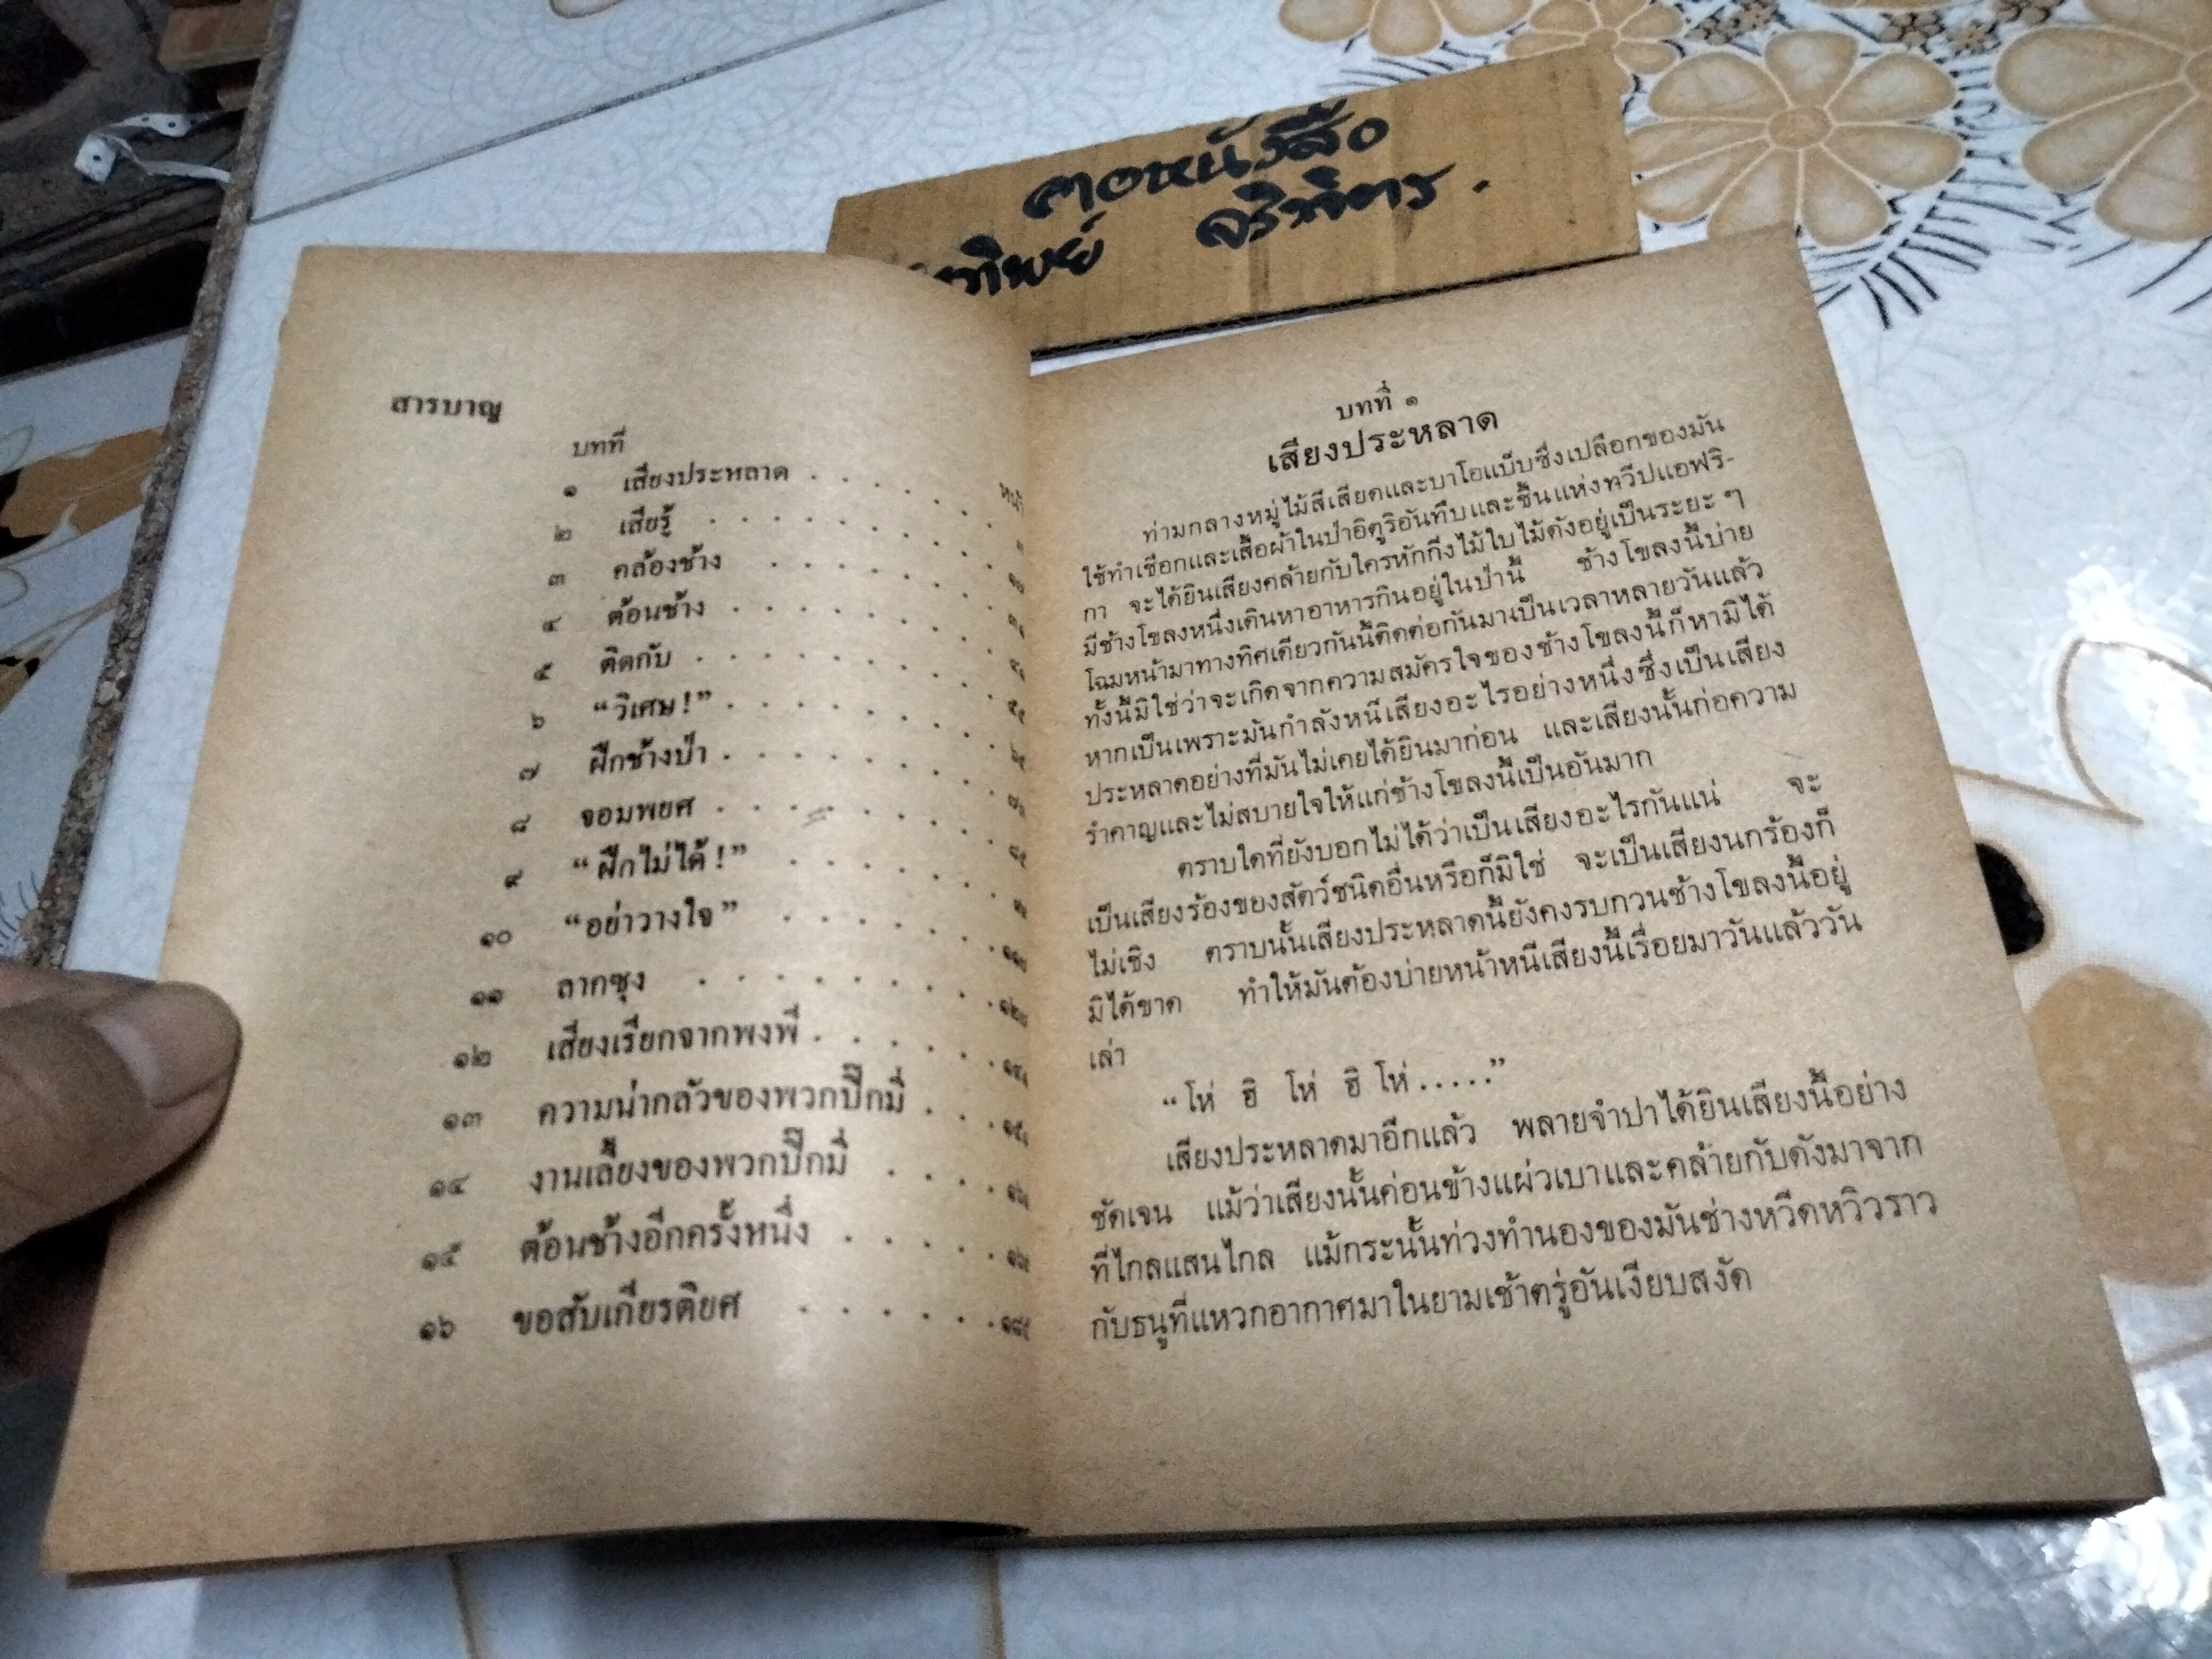 คอหนังสือ
สารบาญ
บทที่
หน้า
๑ เสียงประหลาด . . . . . .
๒ เสียรู้ . . . . . . . .
๓ คล้องช้าง . . . . . . .
๔ ต้อนช้าง . . . . . . .
๕ ติดกับ . . . . . . . .
๖ “วิเศษ!” . . . . . . .
๗ ฝึกช้างป่า . . . . . . .
๘ จอมพยศ . . . . . . .
๙ “ฝึกไม่ได้!” . . . . . .
๑๐ “อย่าวางใจ” . . . . . .
๑๑ ลากซุง . . . . . . . .
๑๒ เสียงเรียกจากพงพี . . . . .
๑๓ ความน่ากลัวของพวกปิ๊กมี่ . . .
๑๔ งานเลี้ยงของพวกปิ๊กมี่ . . . .
๑๕ ต้อนช้างอีกครั้งหนึ่ง . . . . .
๑๖ ขอสับเกียรติยศ . . . . . .
บทที่ ๑
เสียงประหลาด
ท่ามกลางหมู่ไม้สีเสียดและบาโอแบ็บซึ่งเปลือกของมัน
ใช้ทำเชือกและเสื้อผ้าในป่าอิตูริอันทึบและชื้นแห่งทวีปแอฟริ-
กา จะได้ยินเสียงคล้ายกับใครหักกิ่งไม้ใบไม้ดังอยู่เป็นระยะ ๆ
มีช้างโขลงหนึ่งเดินหาอาหารกินอยู่ในป่านี้ ช้างโขลงนี้บ่าย
โฉมหน้ามาทางทิศเดียวกันนี้ติดต่อกันมาเป็นเวลาหลายวันแล้ว
ทั้งนี้มิใช่ว่าจะเกิดจากความสมัครใจของช้างโขลงนี้ก็หามิได้
หากเป็นเพราะมันกำลังหนีเสียงอะไรอย่างหนึ่งซึ่งเป็นเสียง
ประหลาดอย่างที่มันไม่เคยได้ยินมาก่อน และเสียงนั้นก่อความ
รำคาญและไม่สบายใจให้แก่ช้างโขลงนี้เป็นอันมาก
ตราบใดที่ยังบอกไม่ได้ว่าเป็นเสียงอะไรกันแน่ จะ
เป็นเสียงร้องของสัตว์ชนิดอื่นหรือก็มิใช่ จะเป็นเสียงนกร้องก็
ไม่เชิง ตราบนั้นเสียงประหลาดนี้ยังคงรบกวนช้างโขลงนี้อยู่
มิได้ขาด ทำให้มันต้องบ่ายหน้าหนีเสียงนี้เรื่อยมาวันแล้ววัน
เล่า
“โห่ ฮิ โห่ ฮิ โห่.....”
เสียงประหลาดมาอีกแล้ว พลายจำปาได้ยินเสียงนี้อย่าง
ชัดเจน แม้ว่าเสียงนั้นค่อนข้างแผ่วเบาและคล้ายกับดังมาจาก
ที่ไกลแสนไกล แม้กระนั้นท่วงทำนองของมันช่างหวีดหวิวราว
กับธนูที่แหวกอากาศมาในยามเช้าตรู่อันเงียบสงัด